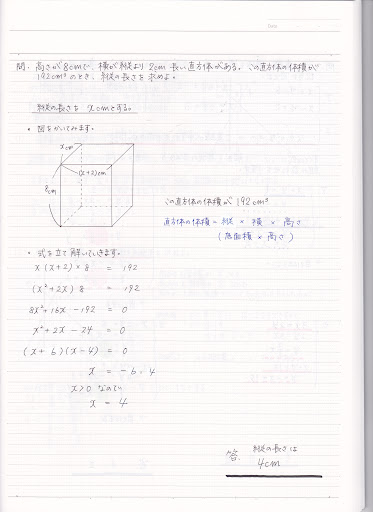 問. 高さが8cmで、横が縦より2cm長い直方体がある。この直方体の体積が
192cm³のとき、縦の長さを求めよ。
縦の長さを xcmとする。
・図をかいてみます。
xcm
(x+2)cm
8cm
この直方体の体積が192cm³
直方体の体積=縦×横×高さ
(底面積×高さ)
・式を立て解いていきます。
x(x+2)×8 = 192
(x²+2x)8 = 192
8x²+16x-192 = 0
x²+2x-24 = 0
(x+6)(x-4) = 0
x = -6, 4
x>0 なので
x = 4
答. 縦の長さは
4cm